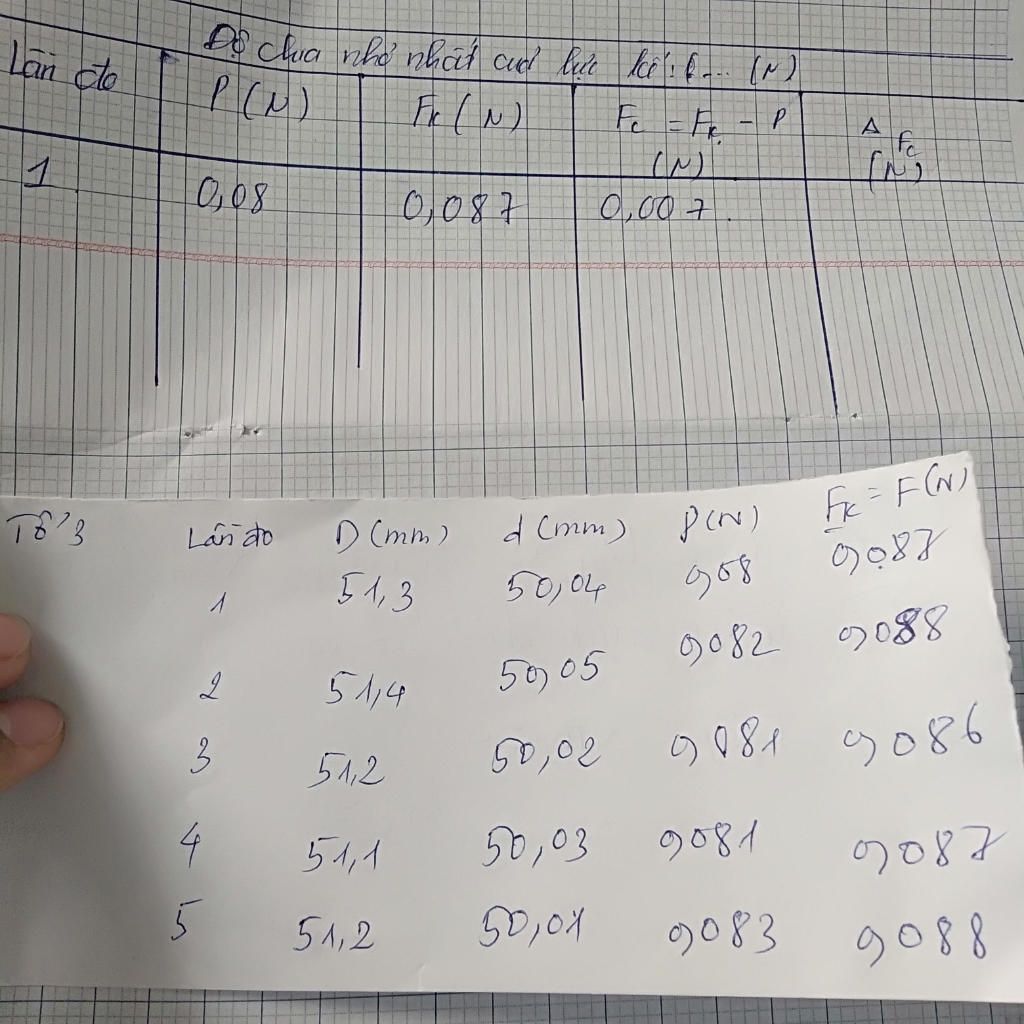 Độ chia nhỏ nhất của lực kế: 0... (N)
Lần đo P(N) Fk(N) Fc = Fk - P (N) ΔFc (N)
1 0,08 0,087 0,007.
Tổ 3 Lần đo D(mm) d(mm) P(N) Fk = F(N)
1 51,3 50,04 0,08 0,087
2 51,4 50,05 0,082 0,088
3 51,2 50,02 0,081 0,086
4 51,1 50,03 0,081 0,087
5 51,2 50,01 0,083 0,088